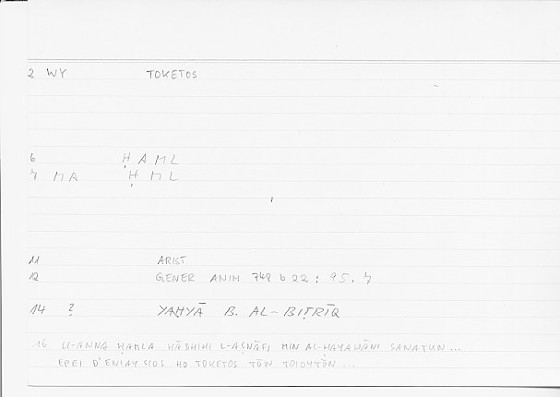 2 WY TOKETOS
6 ḤAML
7 MA ḤML
11 ARIST
12 GENER ANIM 748 b 22 : 95. 7
14 ? YAḤYĀ B. AL-BIṬRĪQ
16 LI-ANNA ḤAMLA HĀDHIHI L-AṢNĀFI MIN AL-ḤAYAWĀNI SANATUN ...
EPEI D'ENIAYSIOS HO TOKETOS TŌN TOIOYTŌN ...